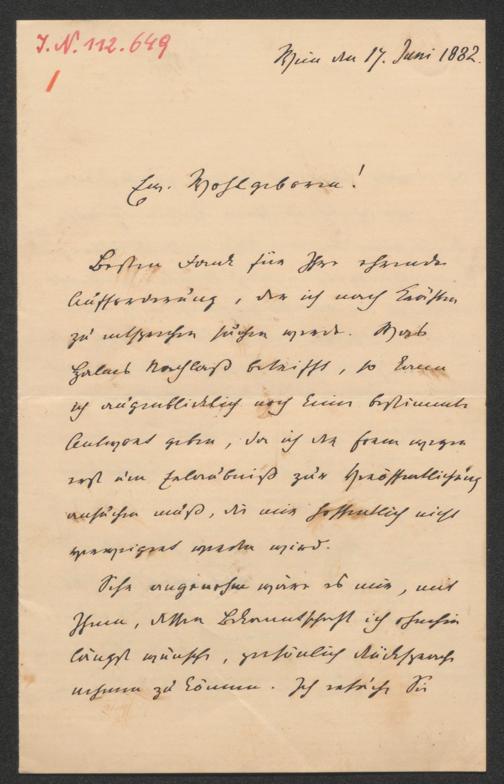 J. N. 112.649
Wien den 17. Juni 1882.
Euer Wohlgeboren!
Besten Dank für Ihre ehrende
Aufforderung, der ich nach Kräften
zu entsprechen suchen werde. Was
Halms Nachlaß betrifft, so kann
ich augenblicklich noch keine bestimmte
Antwort geben, da ich der Form wegen
erst um Erlaubniß zur Veröffentlichung
ansuchen muß, die mir hoffentlich nicht
verweigert werden wird.
Sehr angenehm wäre es mir, mit
Ihnen, dessen Bekanntschaft ich ohnehin
längst wünsche, persönlich Rücksprache
nehmen zu können. Ich ersuche Sie